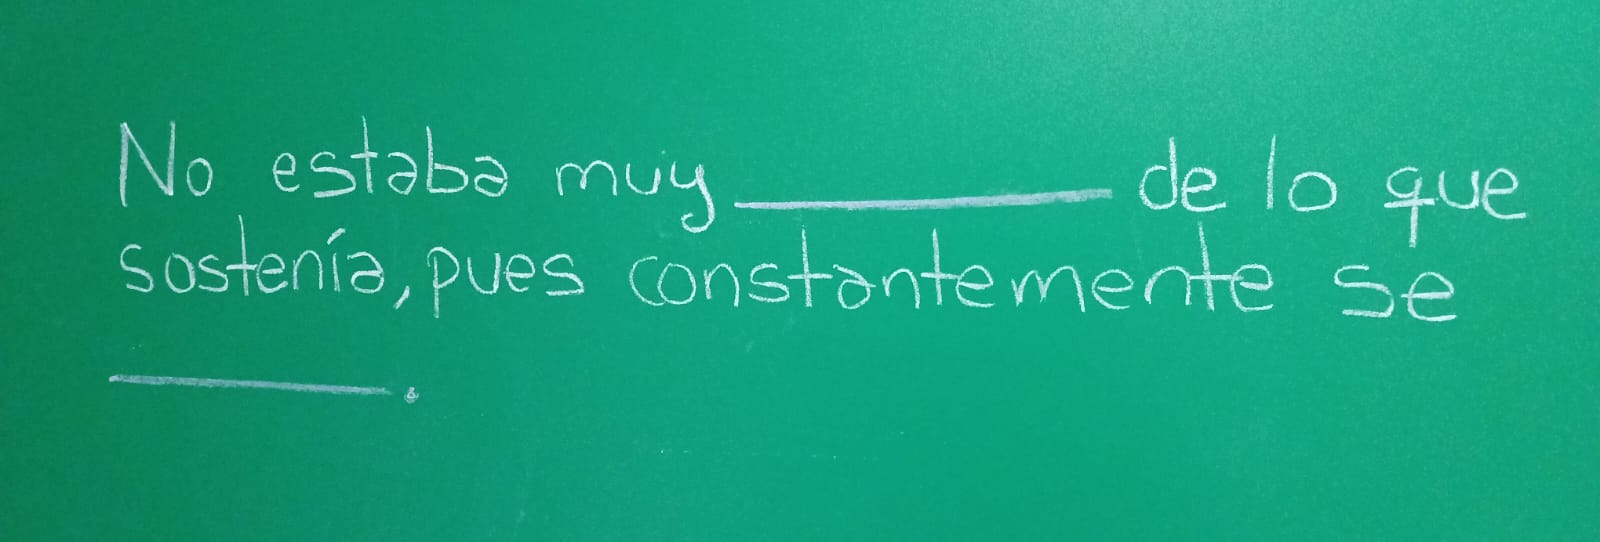 No estaba muy __________ de lo que
sostenía, pues constantemente se
__________.